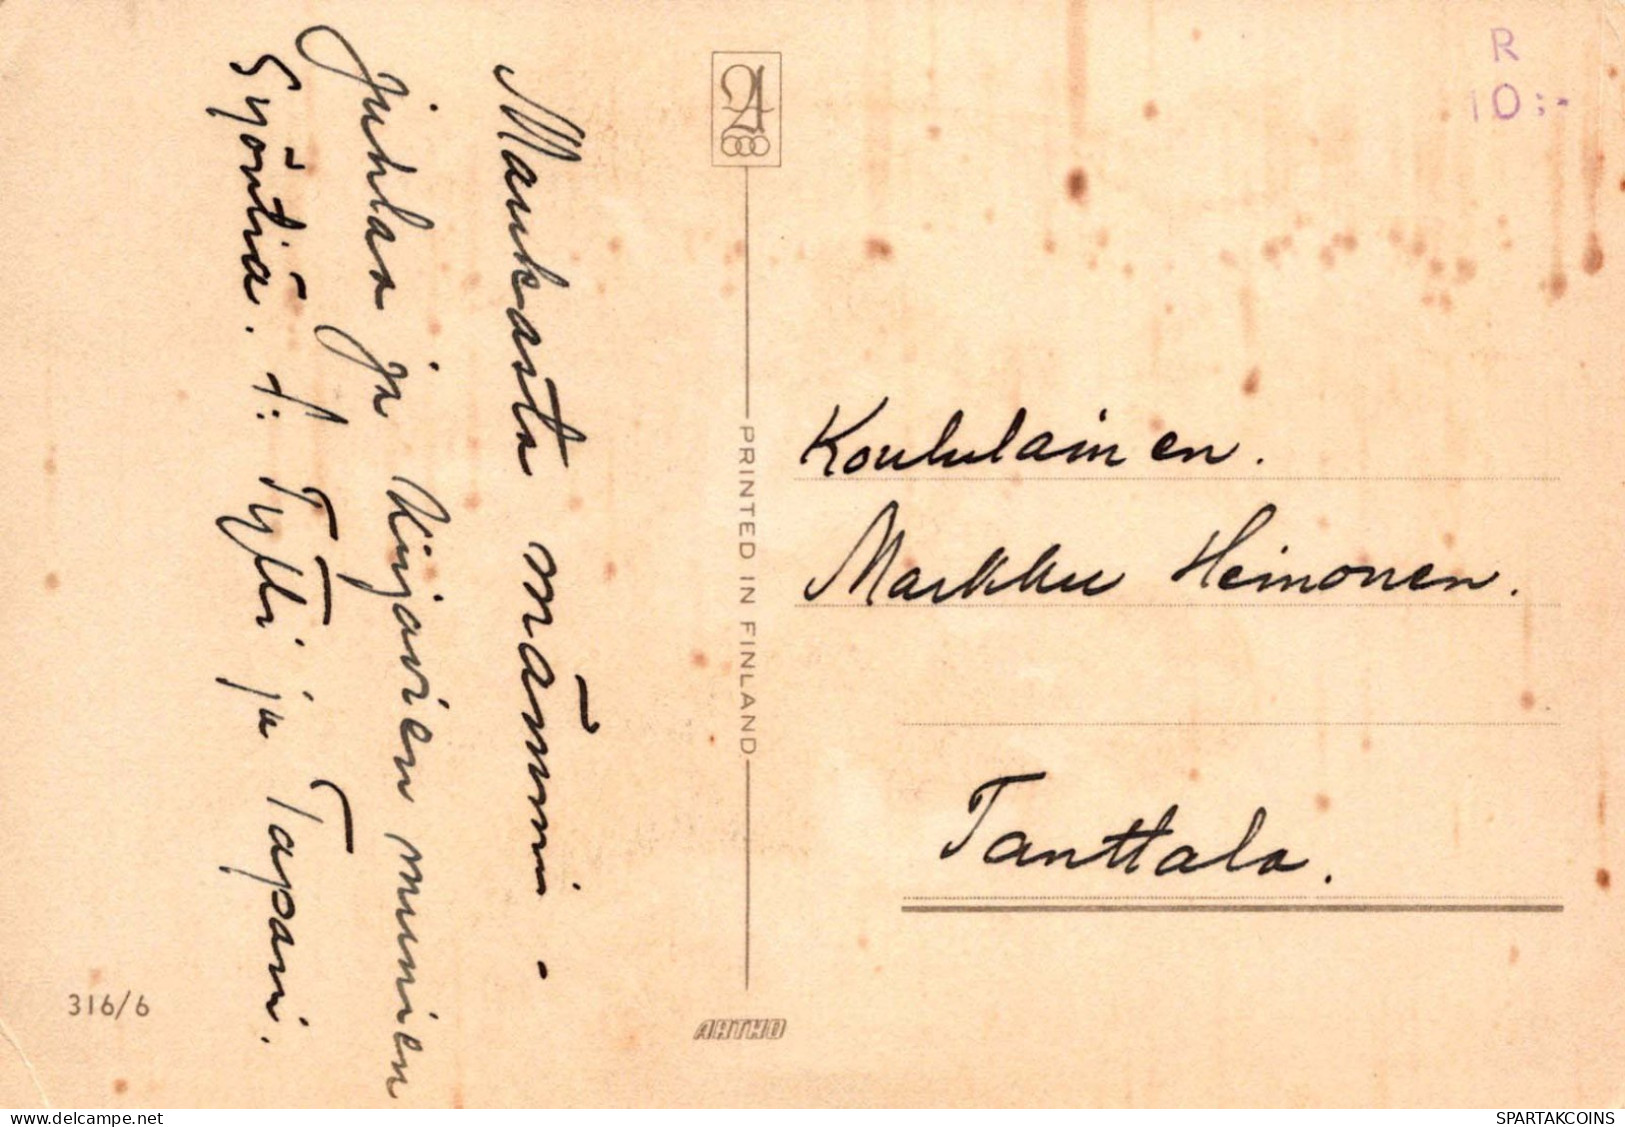 Maukasta mämmi-
juhlaa ja Kirjavien munien
Syöntiä. T: Tytti ja Tapani.
R
10:-
PRINTED IN FINLAND
Koululainen.
Markku Heinonen.
Tanttala.
316/6
ARTHO
www.delcampe.net
SPARTAKCOINS